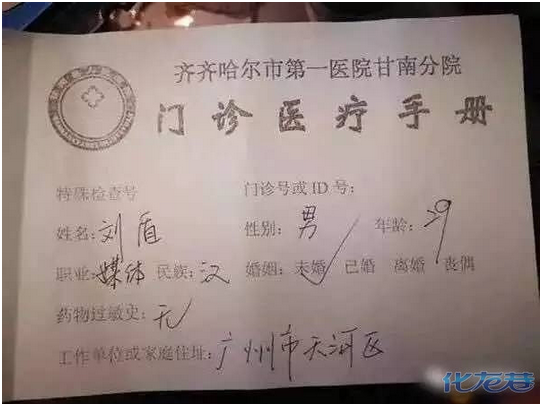 齐齐哈尔市第一医院甘南分院
门诊医疗手册
特殊检查号 门诊号或ID号:
姓名: 刘盾 性别: 男 年龄: 29
职业: 媒体 民族: 汉 婚姻: 未婚 已婚 离婚 丧偶
药物过敏史: 无
工作单位或家庭住址: 广州市天河区
化龙巷